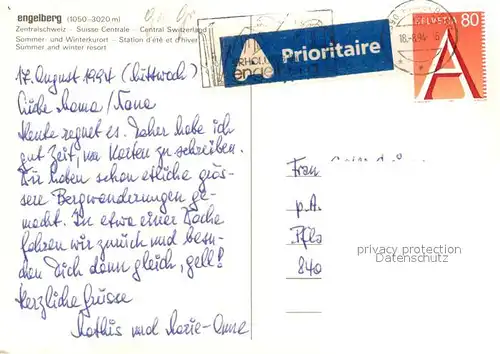 engelberg (1050-3020 m)
Zentralschweiz - Suisse Centrale - Central Switzerland
Sommer- und Winterkurort - Station d'été et d'hiver
Summer and winter resort
Prioritaire
HELVETIA 80
A
18.-8.94
17. August 1994 (Mittwoch)
Liebe Mama/Nana
Heute regnet es. Daher habe ich
gut Zeit, um Karten zu schreiben.
Wir haben schon etliche gros-
sere Bergwanderungen ge-
macht. In etwa einer Woche
fahren wir zurück und besu-
chen Dich dann gleich, gell!
Herzliche Grüsse
Mathis und Marie-Anne
Frau
p.A.
Pfle
840
privacy protection
DARMER.DE